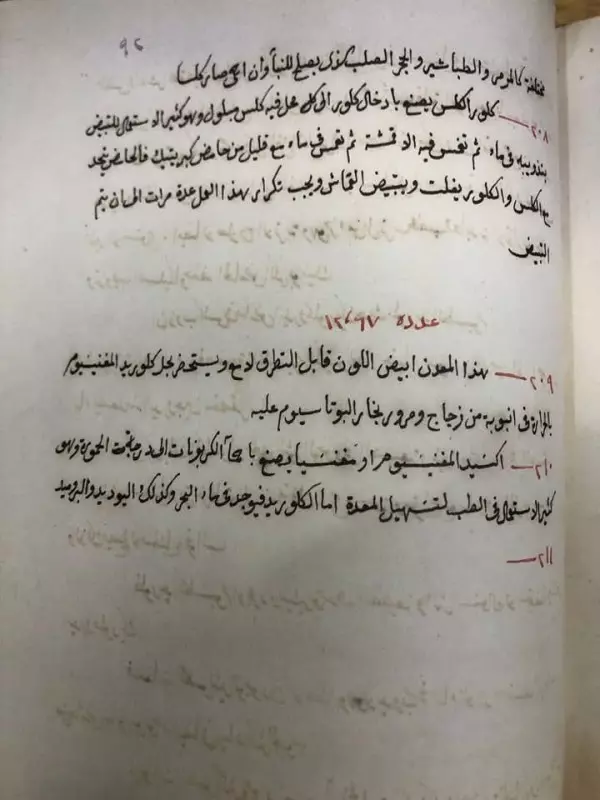 ٤٩
مختلفة كالمرمر والطباشير والحجر الصلب الذي يصلح للبنا وان احمي صار كلسا
٢٠٨— كلورالكلس يصنع بادخال كلور الى كل محل فيه كلس مبلول وهو كثير الاستعمال للتبيض
بتذويبه فى ماء ثم تغمس فيه الاقمشة ثم تغمس فى ماء مع قليل من حامض كبريتيك فالحامض يتحد
مع الكلس والكلور يفلت ويبيض القماش ويجب تكرار هذا العمل عدة مرات الى ان يتم
التبيض
عدده ١٢،٩٧
٢٠٩— هذا المعدن ابيض اللون قابل التطرق لامع ويستحضر بحل كلوريد المغنيسيوم
بالحرارة فى انبوبة من زجاج ومرور بخار البوتاسيوم عليه
٢١٠— اكسيد المغنيسيوم او مغنيسيا يصنع باحمآ الكربونات الى درجة الحمرة وهو
كثير الاستعمال فى الطب لتسهيل المعدة اما الكلوريد فيوجد فى ماء البحر وكذلك اليوديد والبروميد
٢١١—